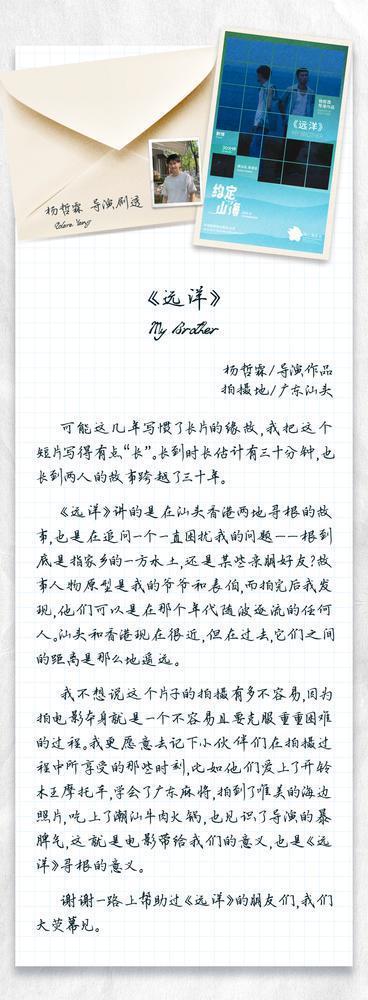 《远洋》
MY BROTHER
剧情
30分钟
约定
山海
杨哲霖 导演剧透
《远洋》
My Brother
杨哲霖/导演作品
拍摄地/广东汕头
可能这几年写惯了长片的缘故,我把这个
短片写得有点“长”。长到时长估计有三十分钟,也
长到两人的故事跨越了三十年。
《远洋》讲的是在汕头香港两地寻根的故
事,也是在追问一个一直困扰我的问题——根到
底是指家乡的一方水土,还是某些亲朋好友?故
事人物原型是我的爷爷和表伯,而拍完后我发
现,他们可以是在那个年代随波逐流的任何
人。汕头和香港现在很近,但在过去,它们之间
的距离是那么地遥远。
我不想说这个片子的拍摄有多不容易,因为
拍电影本身就是一个不容易且要克服重重困难
的过程。我更愿意去记下小伙伴们在拍摄过
程中所享受的那些时刻,比如他们爱上了开铃
木王摩托车,学会了广东麻将,拍到了唯美的海边
照片,吃上了潮汕牛肉火锅,也见识了导演的暴
脾气,这就是电影带给我们的意义,也是《远
洋》寻根的意义。
谢谢一路上帮助过《远洋》的朋友们,我们
大荧幕见。